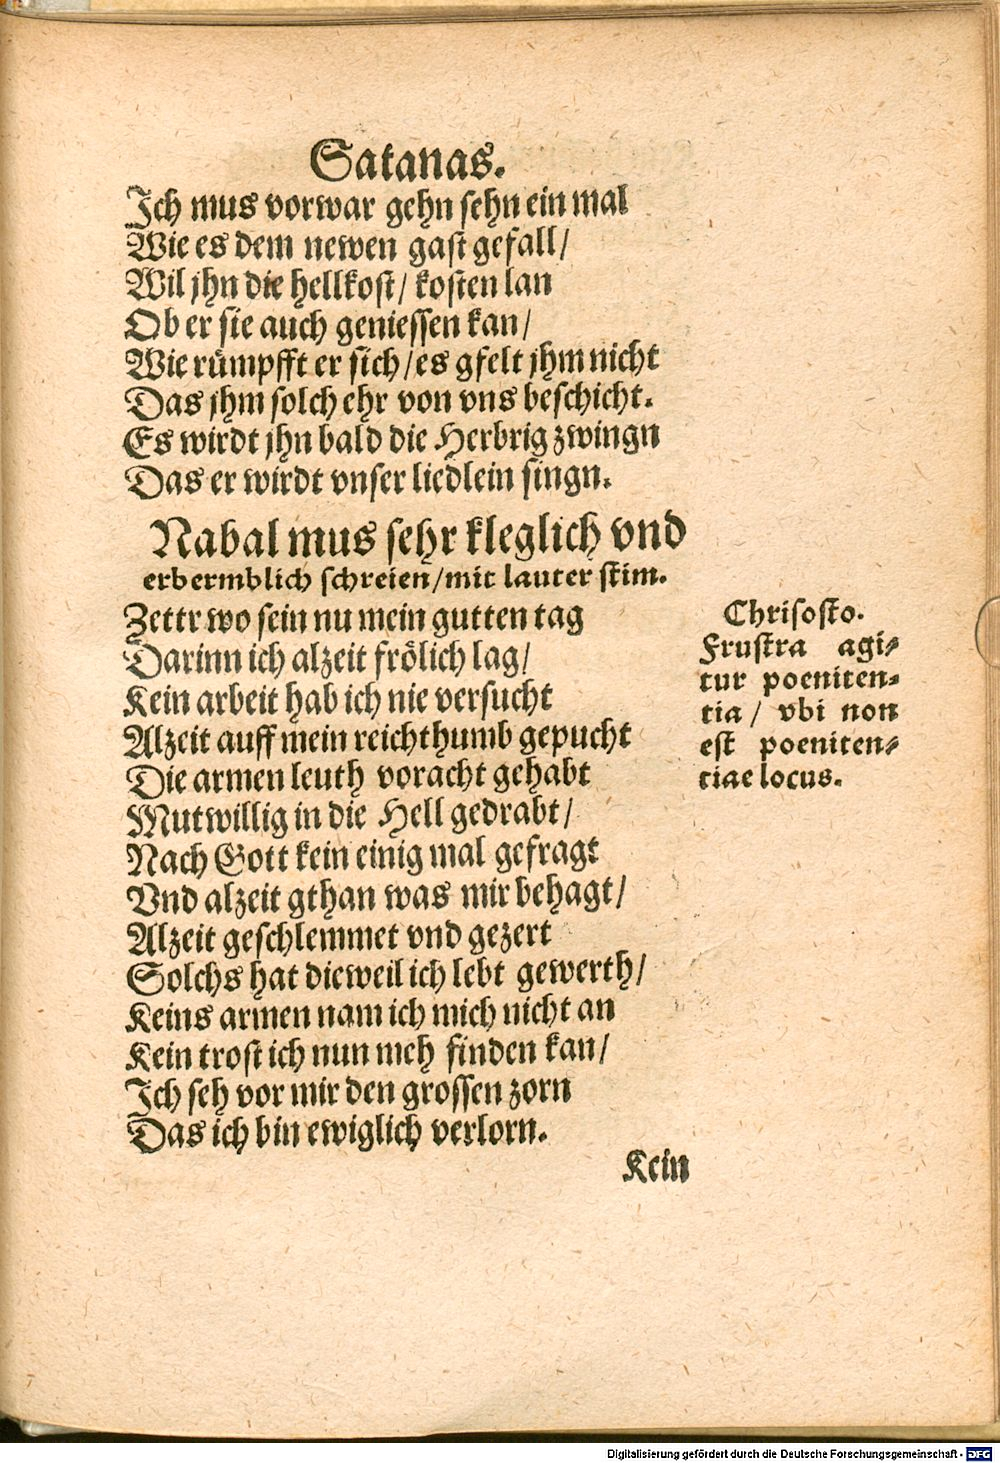 Satanas.
Ich mus vorwar gehn sehn ein mal
Wie es dem newen gast gefall/
Wil jhn die hellkost/ kosten lan
Ob er sie auch geniessen kan/
Wie rümpfft er sich/es gfelt jhm nicht
Das jhm solch ehr von vns beschicht.
Es wirdt jhn bald die Herbrig zwingn
Das er wirdt vnser liedlein singn.
Nabal mus sehr kleglich vnd
erbermblich schreien/mit lauter stim.
Zettr wo sein nu mein gutten tag
Darinn ich alzeit frölich lag/
Kein arbeit hab ich nie versucht
Alzeit auff mein reichthumb gepucht
Die armen leuth voracht gehabt
Mutwillig in die Hell gedrabt/
Nach Gott kein einig mal gefragt
Vnd alzeit gthan was mir behagt/
Alzeit geschlemmet vnd gezert
Solchs hat dieweil ich lebt gewerth/
Keins armen nam ich mich nicht an
Kein trost ich nun meh finden kan/
Ich seh vor mir den grossen zorn
Das ich bin ewiglich verlorn.
Kein
Chrisosto.
Frustra agi-
tur poeniten-
tia/ vbi non
est poeniten-
tiae locus.
Digitalisierung gefördert durch die Deutsche Forschungsgemeinschaft - DFG